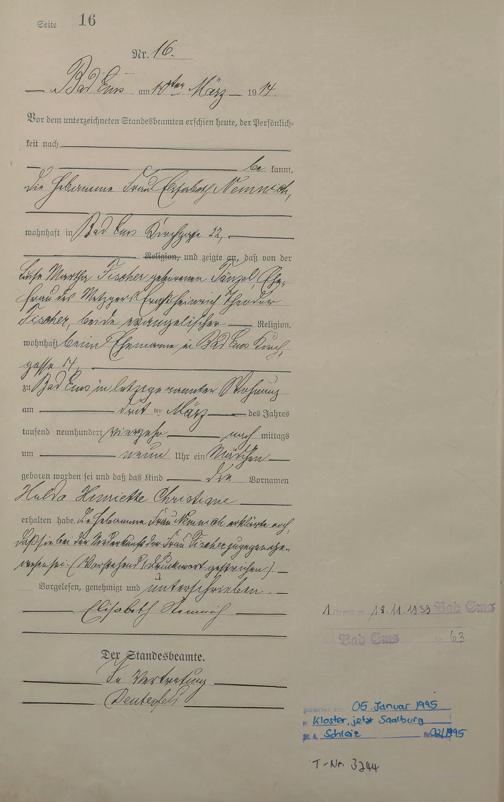 Seite 16
Nr. 16.
Bad Ems am 10ten März 1914.
Vor dem unterzeichneten Standesbeamten erschien heute, der Persönlich-
keit nach
be kannt,
die Hebamme Frau Elisabeth
wohnhaft in Bad Ems Kirchgasse 22,
Religion, und zeigte an, daß von der
Luise Martha Fischer geborenen Tänzel Ehe-
frau des Metzgers Ernst Heinrich Theodor
Fischer, beide evangelischer Religion,
wohnhaft beim Ehemanne in Bad Ems Kirch-
gasse 17,
zu Bad Ems in letztgenannter Wohnung
am drit ten März des Jahres
tausend neunhundert vierzehn nach mittags
um neun Uhr ein Mädchen
geboren worden sei und daß das Kind die Vornamen
Hulda Henriette Christiane
erhalten habe. Die Hebamme Frau erklärte noch,
daß sie bei der Niederkunft der Frau Fischer zugegen ge-
wesen sei. (Vorstehend Druckwort gestrichen)
Vorgelesen, genehmigt und unterschrieben
Elisabeth
Der Standesbeamte.
In Vertretung
1 18.11.1939 Bad Ems
Bad Ems 63
05. Januar 1995
Kloster, jetzt Saalburg
Schleiz
T-Nr. 3244